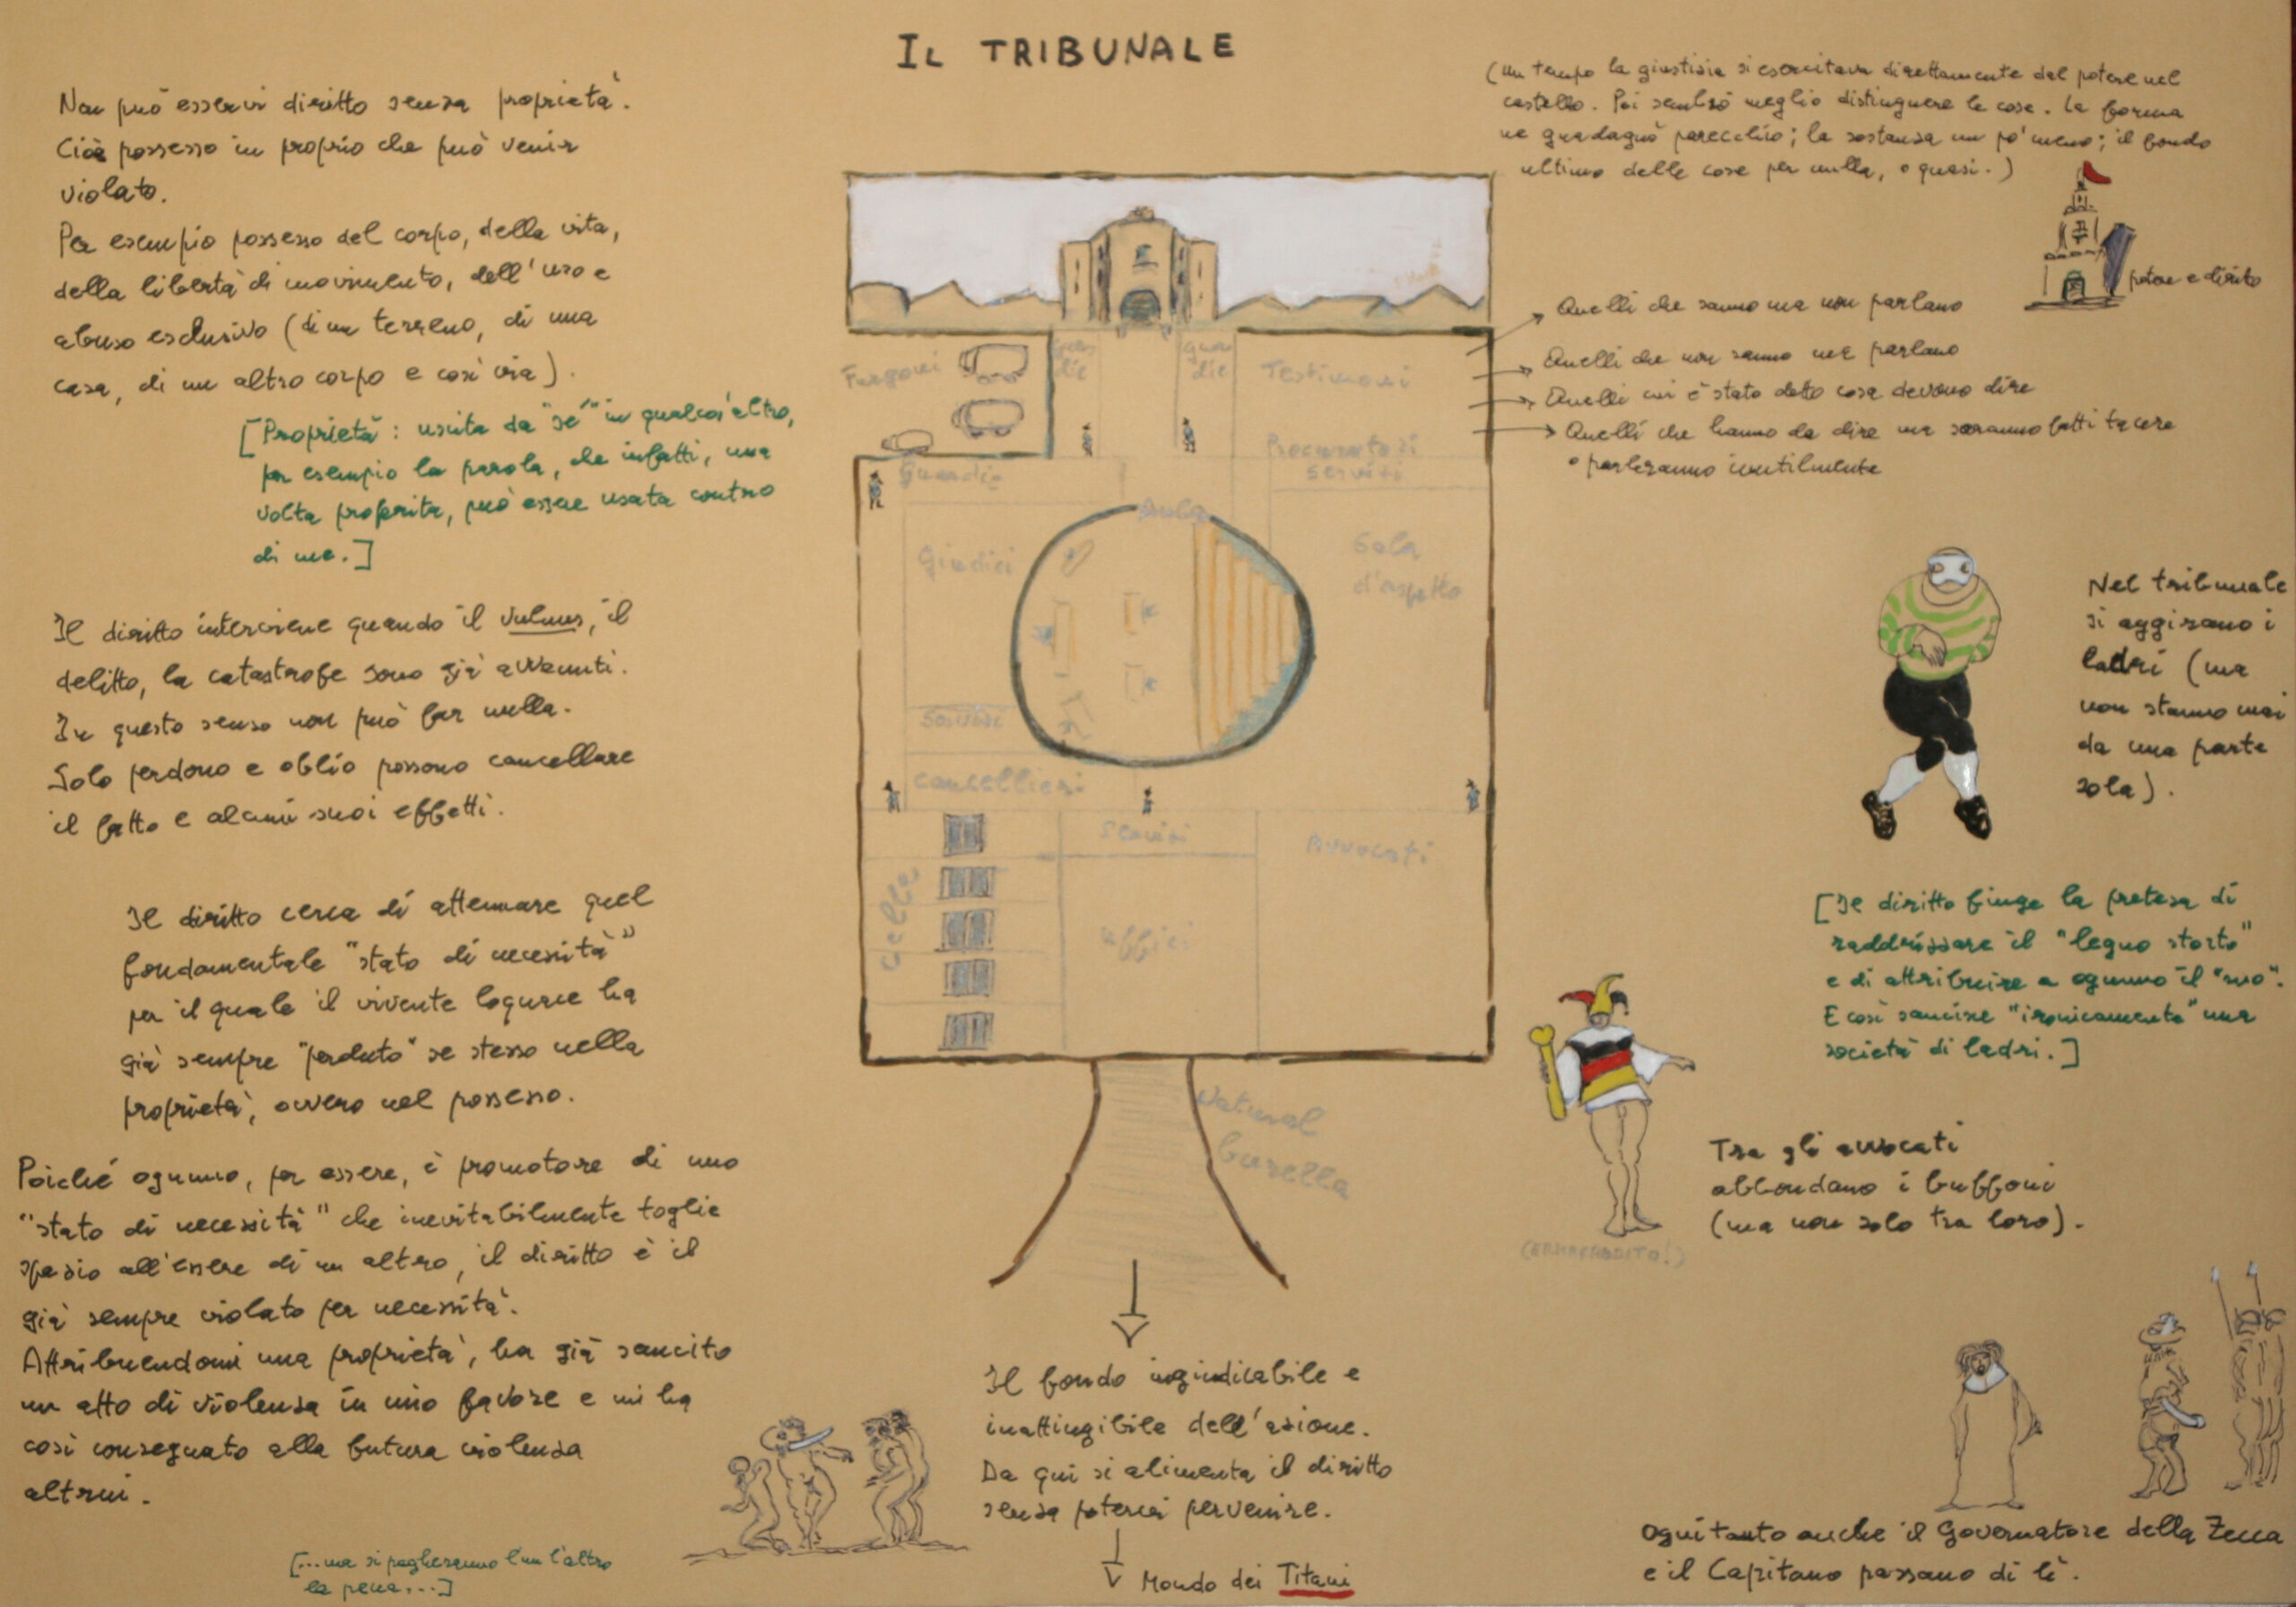 IL TRIBUNALE
Non può esservi diritto senza proprietà.
Cioè possesso in proprio che può venir
violato.
Per esempio possesso del corpo, della vita,
della libertà di movimento, dell'uso e
abuso esclusivo (di un terreno, di una
casa, di un altro corpo e così via).
[Proprietà: uscita da "sé" in qualcos'altro,
per esempio la parola, che infatti, una
volta proferita, può essere usata contro
di me.]
Il diritto interviene quando il vulnus, il
delitto, la catastrofe sono già avvenuti.
In questo senso non può far nulla.
Solo perdono e oblio possono cancellare
il fatto e alcuni suoi effetti.
Il diritto cerca di attenuare quel
fondamentale "stato di necessità"
per il quale il vivente loquace ha
già sempre "perduto" se stesso nella
proprietà, ovvero nel possesso.
Poiché ognuno, per essere, è promotore di uno
"stato di necessità" che inevitabilmente toglie
spazio all'essere di un altro, il diritto è il
già sempre violato per necessità.
Attribuendomi una proprietà, ha già sancito
un atto di violenza in mio favore e mi ha
così consegnato alla futura violenza
altrui.
[...ma si pagheranno l'un l'altro
la pena...]
Furgoni
guardie
guardie
Testimoni
Procuratori
servizi
Guardie
Aula
Giudici
Sala
d'aspetto
Servizi
Cancellieri
Servizi
Avvocati
Celle
Uffici
Natural
burella
Il fondo ingiudicabile e
inattingibile dell'azione.
Da qui si alimenta il diritto
senza potervi pervenire.
Mondo dei Titani
(Un tempo la giustizia si esercitava direttamente dal potere nel
castello. Poi sembrò meglio distinguere le cose. La forma
ne guadagnò parecchio; la sostanza un po' meno; il fondo
ultimo delle cose per nulla, o quasi.)
potere e diritto
Quelli che sanno ma non parlano
Quelli che non sanno ma parlano
Quelli cui è stato detto cosa devono dire
Quelli che hanno da dire ma saranno fatti tacere
o parleranno inutilmente
Nel tribunale
si aggirano i
ladri (ma
non stanno mai
da una parte
sola).
[Il diritto finge la pretesa di
raddrizzare il "legno storto"
e di attribuire a ognuno il "suo".
E così sancisce "ironicamente" una
società di ladri.]
Tra gli avvocati
abbondano i buffoni
(ma non solo tra loro).
(ERMAFRODITO!)
Ogni tanto anche il Governatore della Zecca
e il Capitano passano di lì.